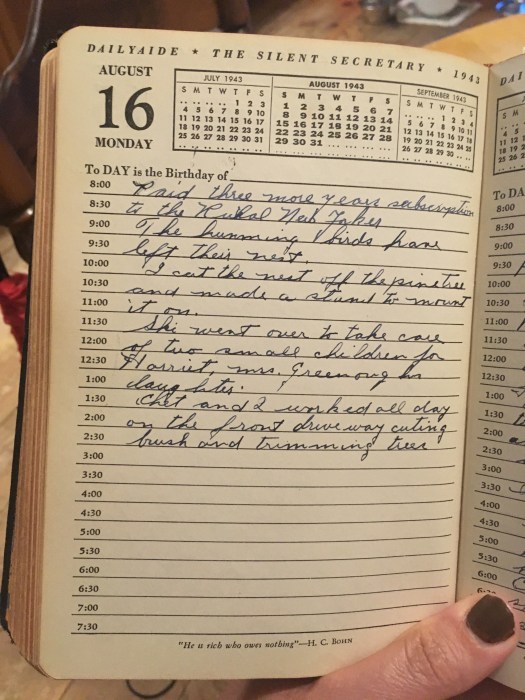 DAILYAIDE ★ THE SILENT SECRETARY ★ 1943
AUGUST
16
MONDAY
JULY 1943
S M T W T F S
.. .. .. .. 1 2 3
4 5 6 7 8 9 10
11 12 13 14 15 16 17
18 19 20 21 22 23 24
25 26 27 28 29 30 31
AUGUST 1943
S M T W T F S
1 2 3 4 5 6 7
8 9 10 11 12 13 14
15 16 17 18 19 20 21
22 23 24 25 26 27 28
29 30 31 ... ... ... ...
SEPTEMBER 1943
S M T W T F S
.. .. .. 1 2 3 4
5 6 7 8 9 10 11
12 13 14 15 16 17 18
19 20 21 22 23 24 25
26 27 28 29 30 .. ..
To DAY is the Birthday of
8:00 Paid three more years subscription
8:30 to the Rural New Yorker
9:00 The humming birds have
9:30 left their nest.
10:00 I cut the nest off the pine tree
10:30 and made a stand to mount
11:00 it on.
11:30 Ski went over to take care
12:00 of two small children for
12:30 Harriet, Mrs. Greenoughs
1:00 daughter.
1:30 Chet and I worked all day
2:00 on the front driveway cuting
2:30 brush and trimming trees
3:00
3:30
4:00
4:30
5:00
5:30
6:00
6:30
7:00
7:30
"He is rich who owes nothing"—H. C. BOHN
DAI
S M
To DA
8:00
8:30
9:00
9:30
10:00
10:30
11:00
11:30
12:00
12:30
1:00
1:30
2:00
2:30
3:00
3:30
4:00
4:30
5:00
5:30
6:00